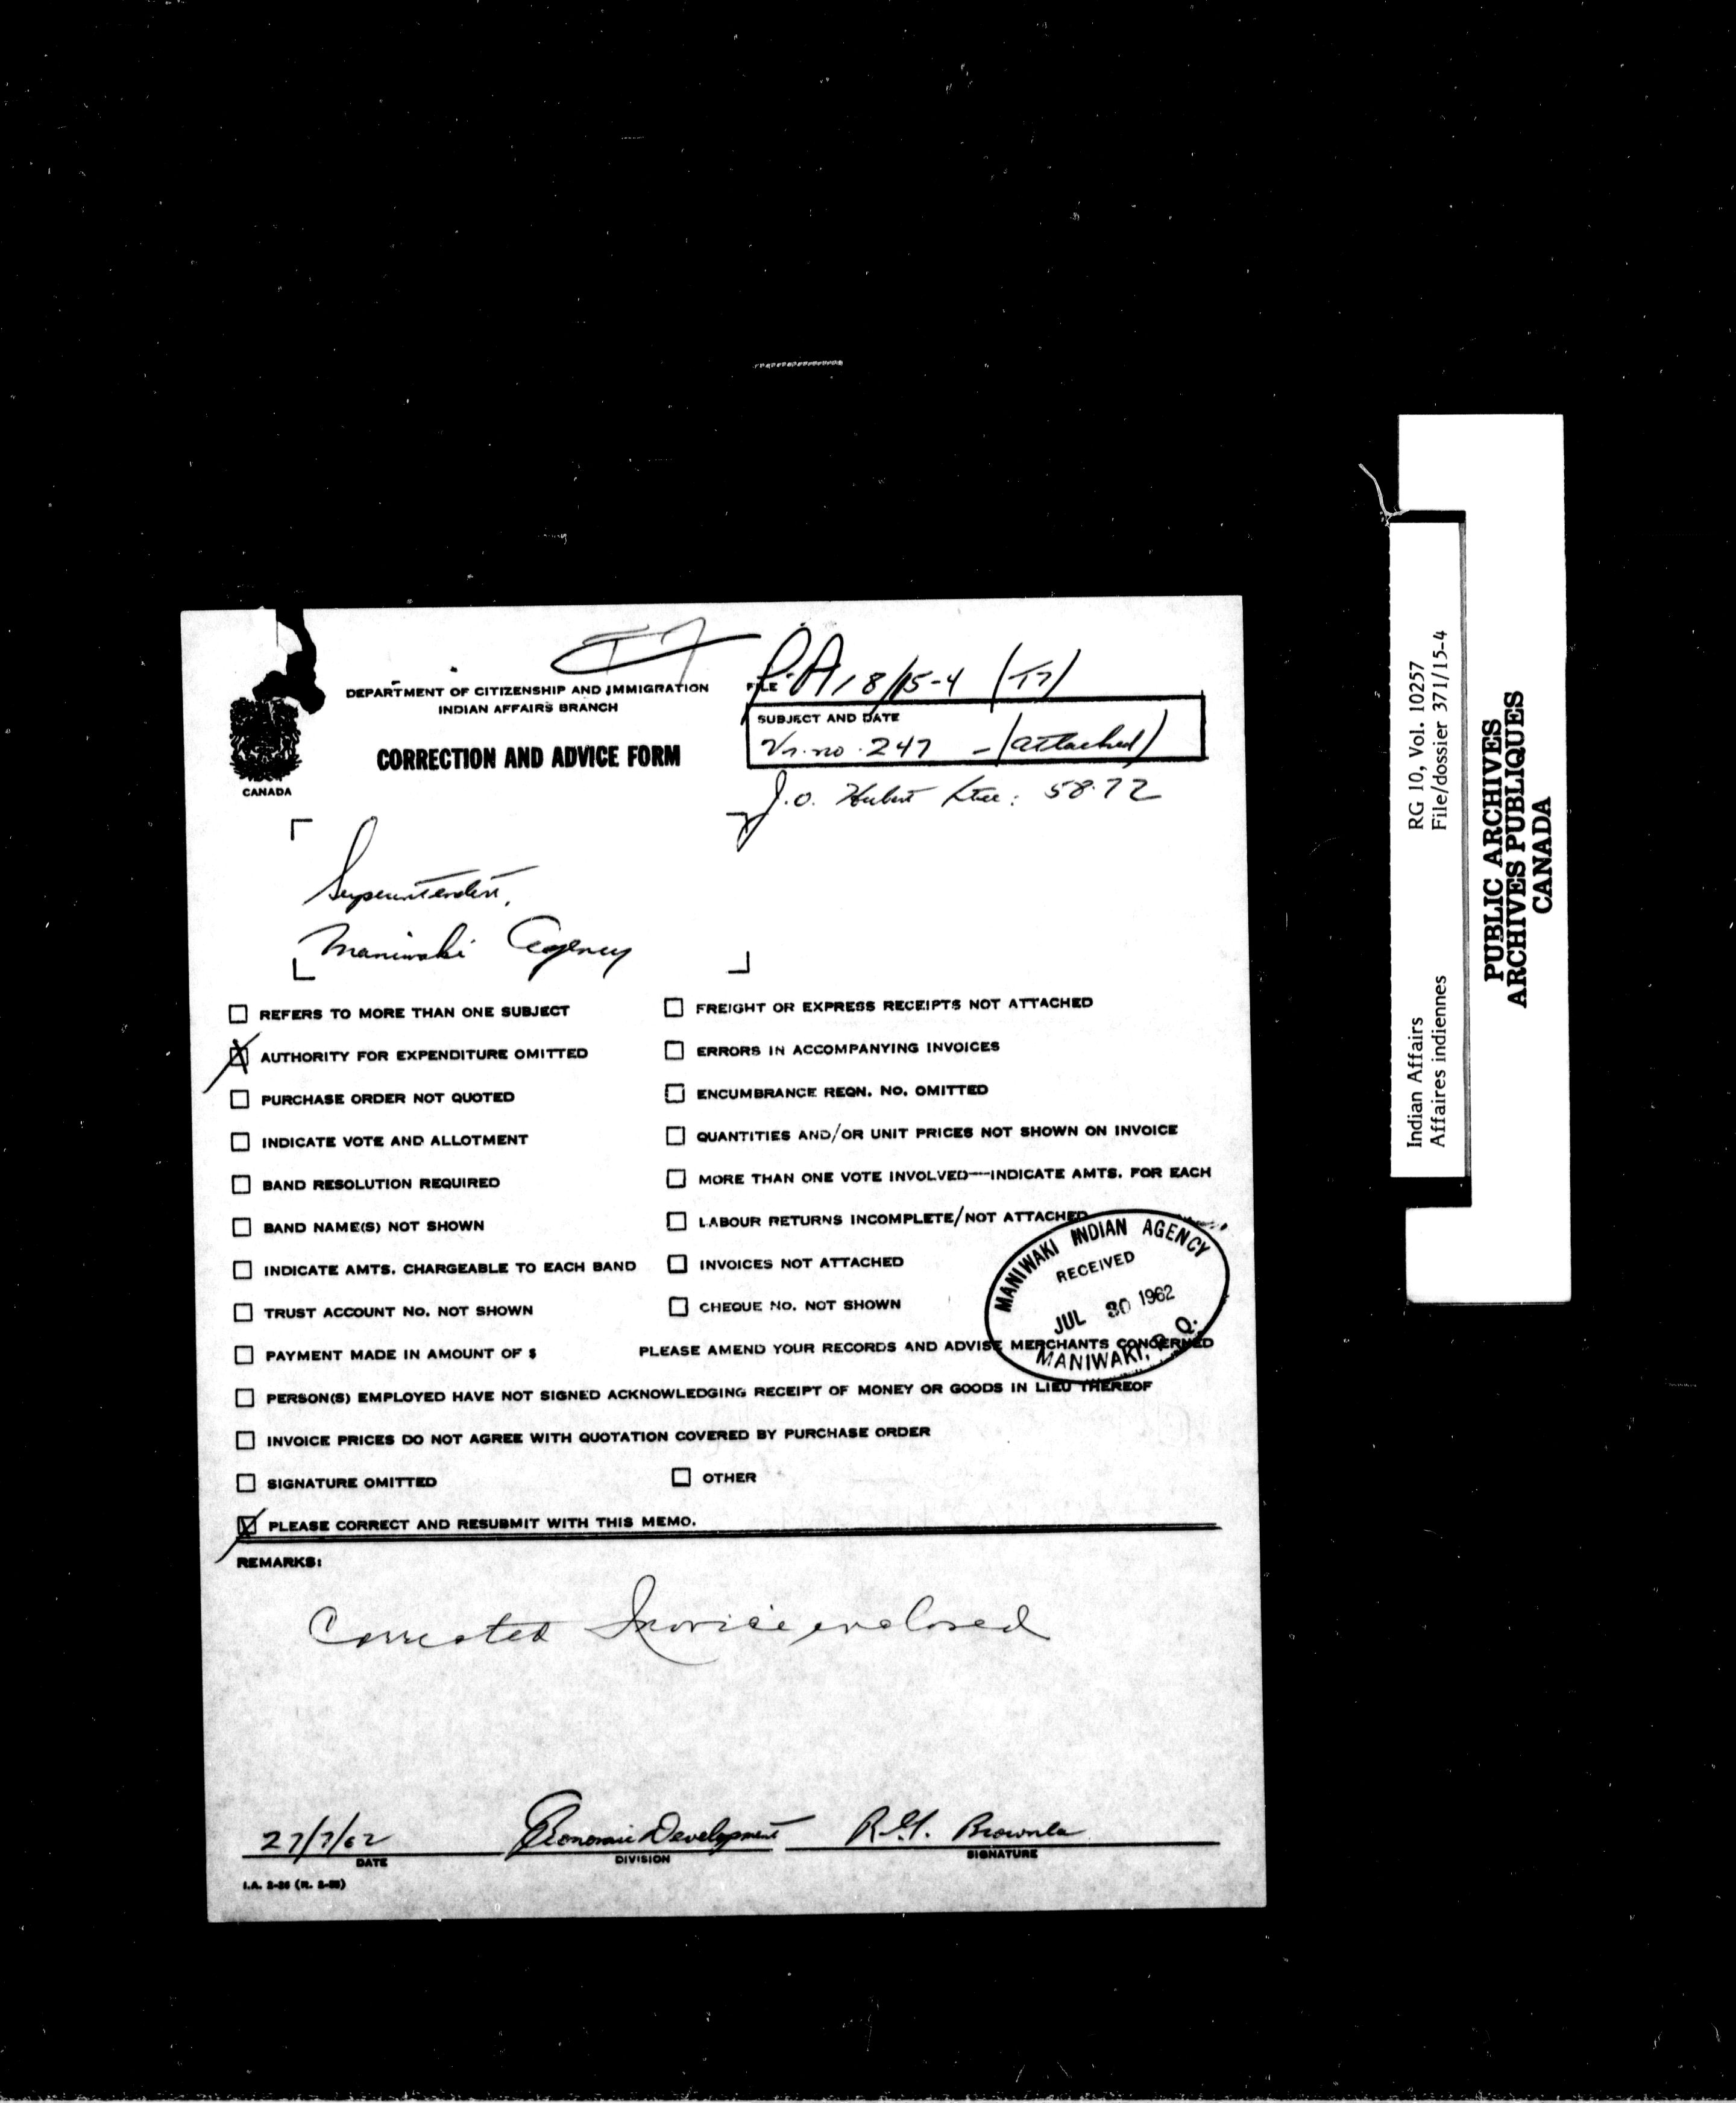 DEPARTMENT OF CITIZENSHIP AND IMMIGRATION
INDIAN AFFAIRS BRANCH
CORRECTION AND ADVICE FORM
CANADA
FILE 18/15-4 (T7)
SUBJECT AND DATE
Vr. no. 247 - (attached)
J.O. Hubert Ltee: 58.72
Superintendent,
Maniwaki Agency
☐ REFERS TO MORE THAN ONE SUBJECT
☒ AUTHORITY FOR EXPENDITURE OMITTED
☐ PURCHASE ORDER NOT QUOTED
☐ INDICATE VOTE AND ALLOTMENT
☐ BAND RESOLUTION REQUIRED
☐ BAND NAME(S) NOT SHOWN
☐ INDICATE AMTS. CHARGEABLE TO EACH BAND
☐ TRUST ACCOUNT NO. NOT SHOWN
☐ FREIGHT OR EXPRESS RECEIPTS NOT ATTACHED
☐ ERRORS IN ACCOMPANYING INVOICES
☐ ENCUMBRANCE REQN. NO. OMITTED
☐ QUANTITIES AND/OR UNIT PRICES NOT SHOWN ON INVOICE
☐ MORE THAN ONE VOTE INVOLVED—INDICATE AMTS. FOR EACH
☐ LABOUR RETURNS INCOMPLETE/NOT ATTACHED
☐ INVOICES NOT ATTACHED
☐ CHEQUE NO. NOT SHOWN
MANIWAKI INDIAN AGENCY
RECEIVED
JUL 30 1962
MANIWAKI, P. Q.
☐ PAYMENT MADE IN AMOUNT OF $ PLEASE AMEND YOUR RECORDS AND ADVISE MERCHANTS CONCERNED
☐ PERSON(S) EMPLOYED HAVE NOT SIGNED ACKNOWLEDGING RECEIPT OF MONEY OR GOODS IN LIEU THEREOF
☐ INVOICE PRICES DO NOT AGREE WITH QUOTATION COVERED BY PURCHASE ORDER
☐ SIGNATURE OMITTED ☐ OTHER
☒ PLEASE CORRECT AND RESUBMIT WITH THIS MEMO.
REMARKS:
Corrected Invoice enclosed
27/7/62 Economic Development
DATE DIVISION SIGNATURE
Indian Affairs RG 10, Vol. 10257
Affaires indiennes File/dossier 371/15-4
PUBLIC ARCHIVES
ARCHIVES PUBLIQUES
CANADA